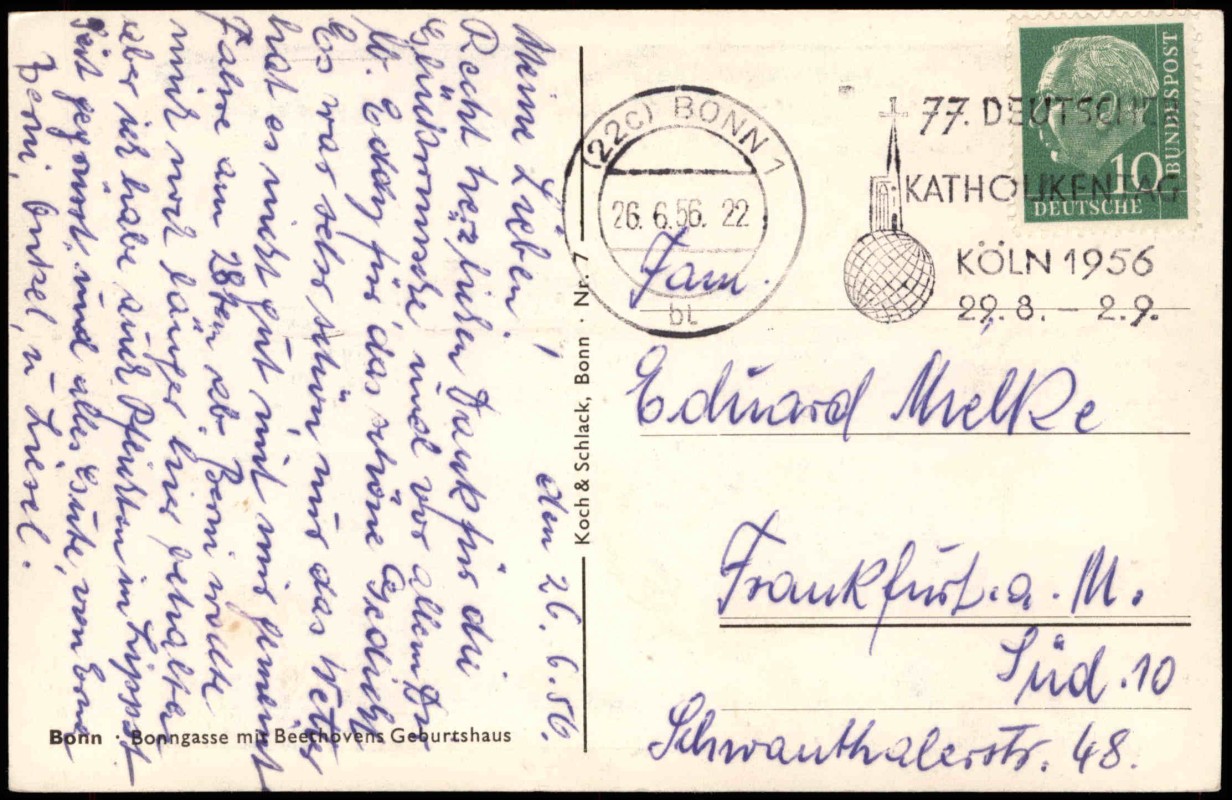 den 26.6.56.
Meine Lieben!
Recht herzlichen Dank für die
Glückwünsche und vor allem Du
lb. Eddy für das schöne Gedicht.
Es war sehr schön, nur das Wetter
hat es nicht gut mit mir gemeint
Fahre am 28ten ab. Berni wollte
mich noch länger hier behalten
aber ich habe auch Pflichten in
Seit gegrüsst und alles Gute, von
Berni, Onkel, u Liesl.
Bonn · Bonngasse mit Beethovens Geburtshaus
Koch & Schlack, Bonn · Nr. 7
(22c) BONN 1
26.6.56. 22
bt
77. DEUTSCHER
KATHOLIKENTAG
KÖLN 1956
29.8. – 2.9.
10
DEUTSCHE
BUNDESPOST
Fam.
Eduard Mielke
Frankfurt. a. M.
Süd. 10
Schwanthalerstr. 48.